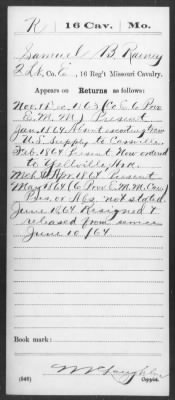 R | 16 Cav. | Mo.
Samuel B. Rainey
2 Lt., Co. E, 16 Reg't Missouri Cavalry.
Appears on Returns as follows:
Nov. & Dec. 1863 (Co E 6 Prov
E. M. M.) Present
Jan. 1864 Absent escorting
U.S. Supply to Cassville
Feb. 1864 Present Now ordered
to Yellville Ark.
Mch & Apr. 1864 Present
May 1864 (6 Prov E.M.M. Cav
Pres. or Abs. not stated.
June 1864 Resigned &
released from service
June 10/64
Book mark:
McLaughlin
(546) Copyist.